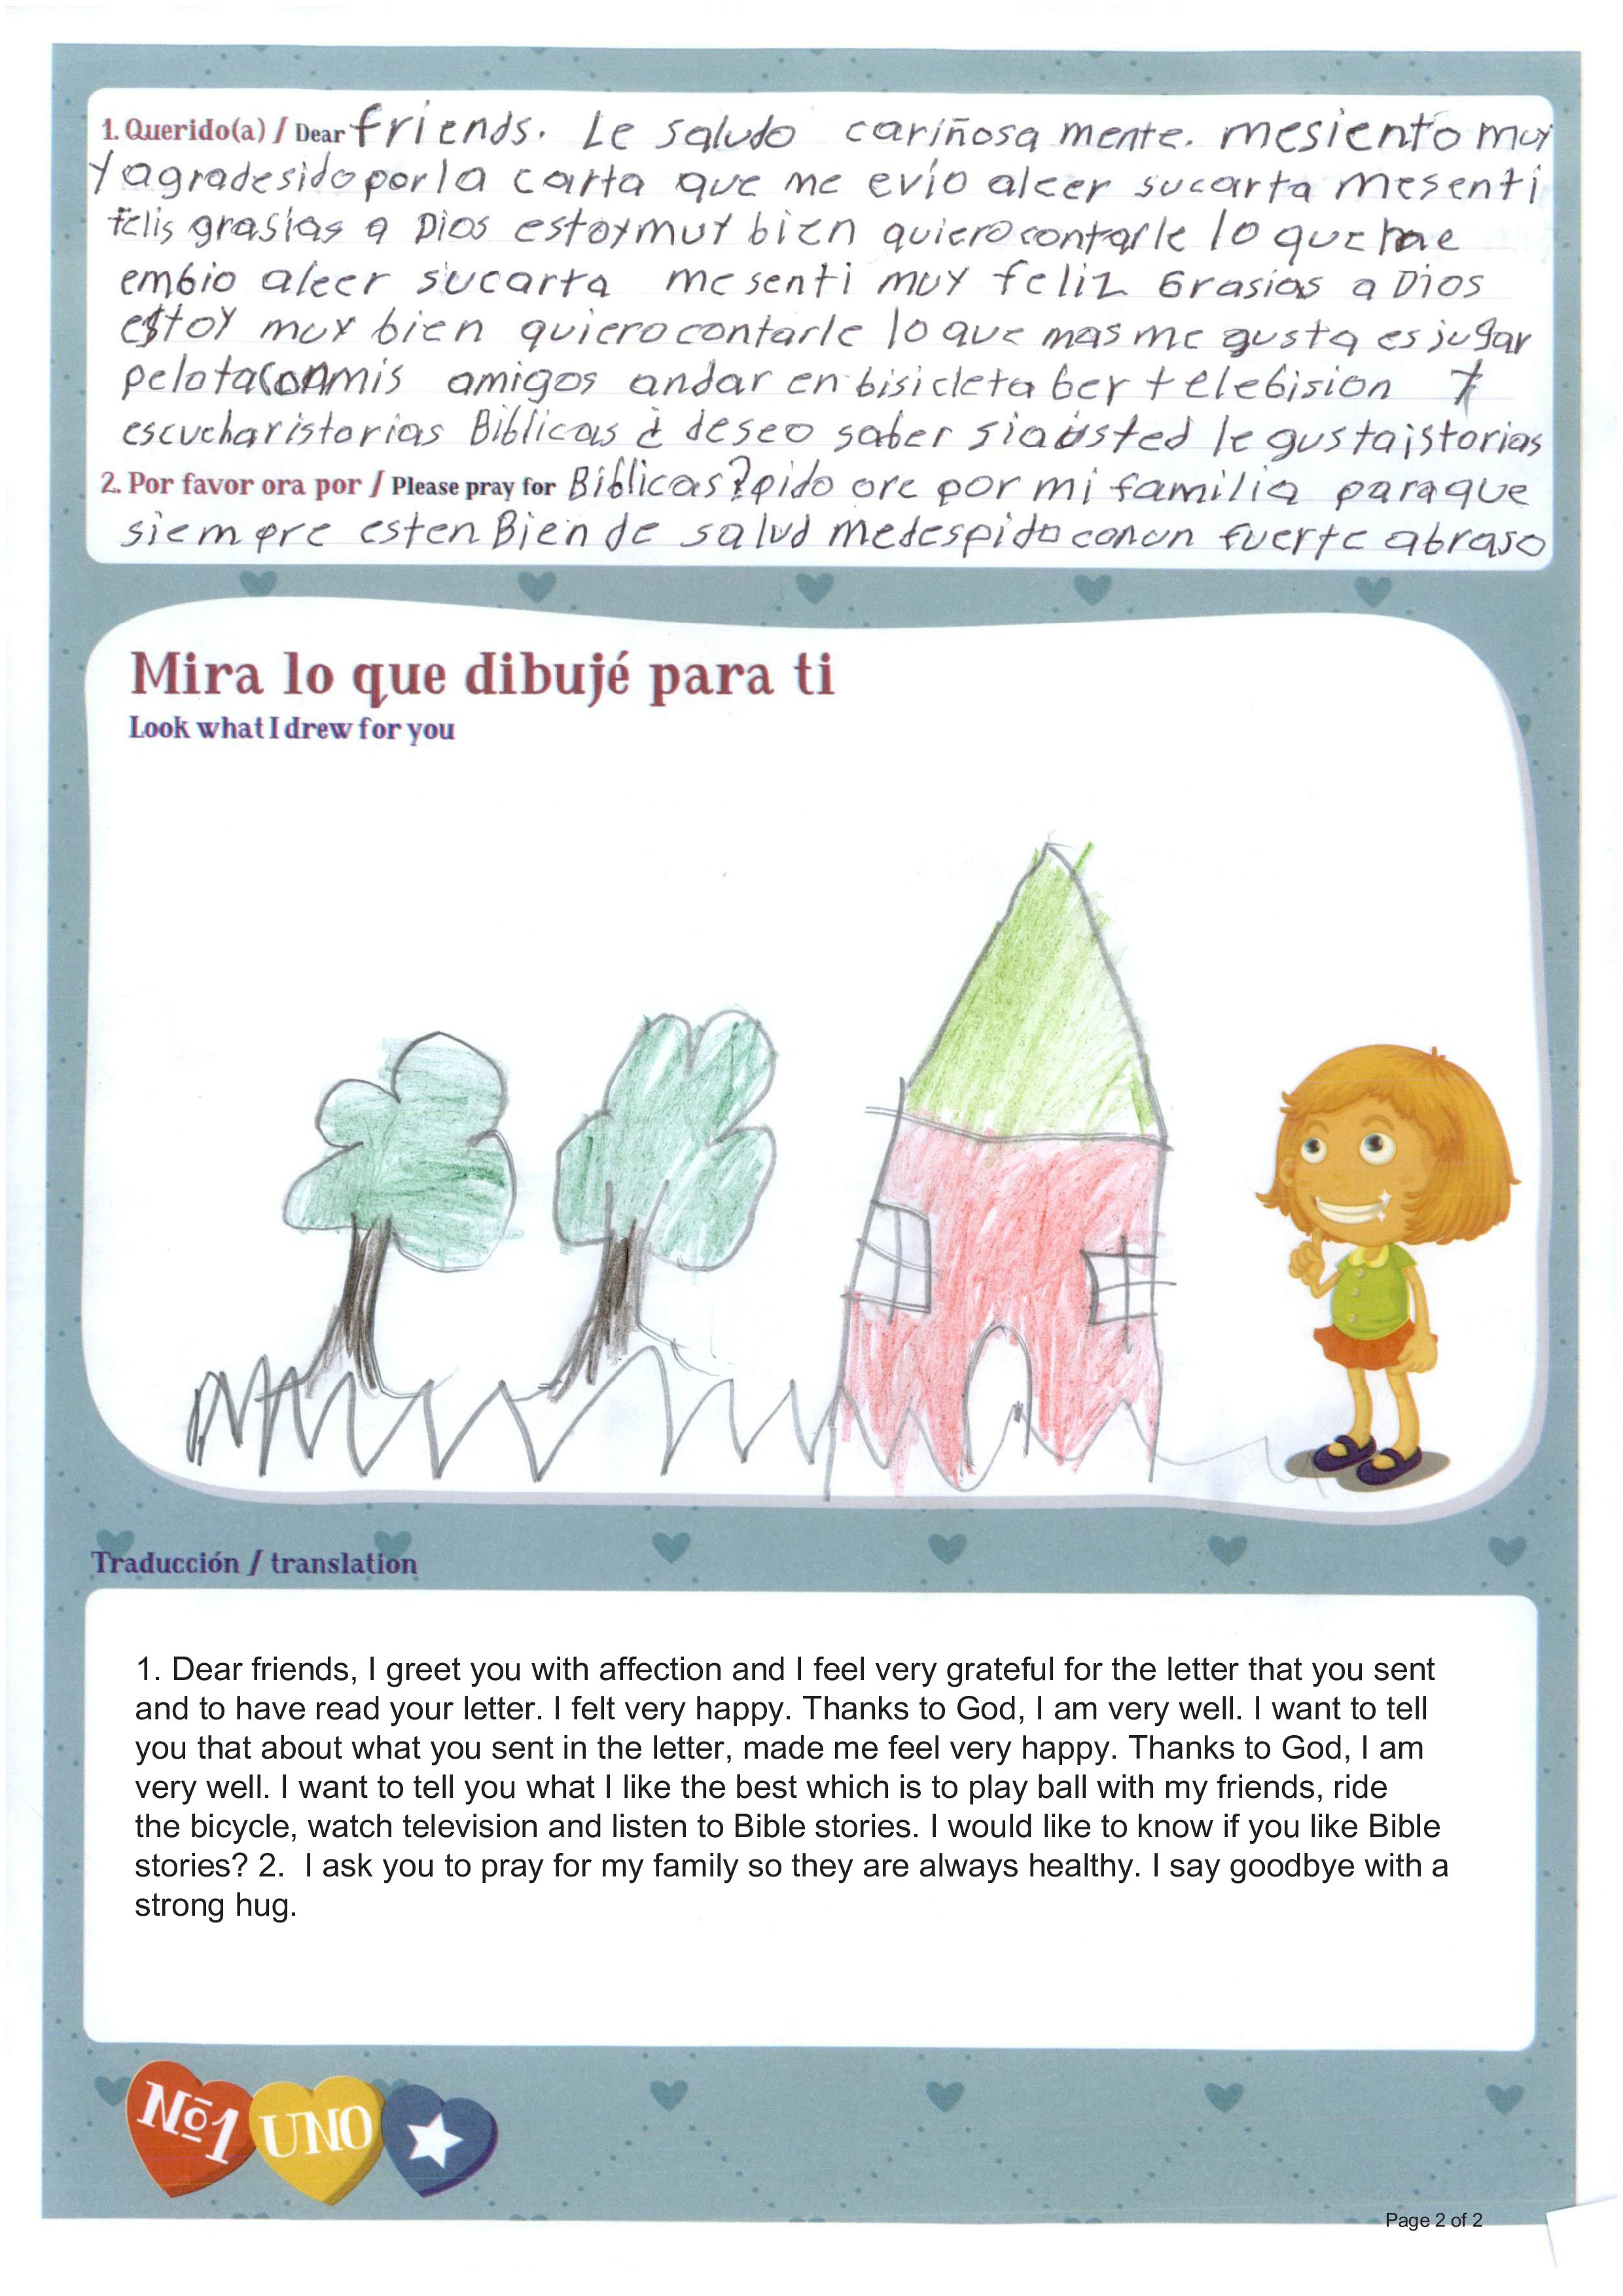 1. Querido(a) / Dear friends. Le saludo cariñosa mente. mesiento muy
y agradesido por la carta que me evío aleer sucarta mesenti
felis grasias a Dios estoy muy bien quiero contarle lo que me
embio aleer sucarta me senti muy feliz Grasias a Dios
estoy muy bien quiero contarle lo que mas me gusta es jugar
pelota con mis amigos andar en bisicleta ber telebision y
escuchar istorias Biblicas ¿ deseo saber si a usted le gusta istorias
2. Por favor ora por / Please pray for Biblicas? pido ore por mi familia para que
siempre esten Bien de salud me despido con un fuerte abraso
Mira lo que dibujé para ti
Look what I drew for you
Traducción / translation
1. Dear friends, I greet you with affection and I feel very grateful for the letter that you sent
and to have read your letter. I felt very happy. Thanks to God, I am very well. I want to tell
you that about what you sent in the letter, made me feel very happy. Thanks to God, I am
very well. I want to tell you what I like the best which is to play ball with my friends, ride
the bicycle, watch television and listen to Bible stories. I would like to know if you like Bible
stories? 2.  I ask you to pray for my family so they are always healthy. I say goodbye with a
strong hug.
Nº1 UNO
Page 2 of 2